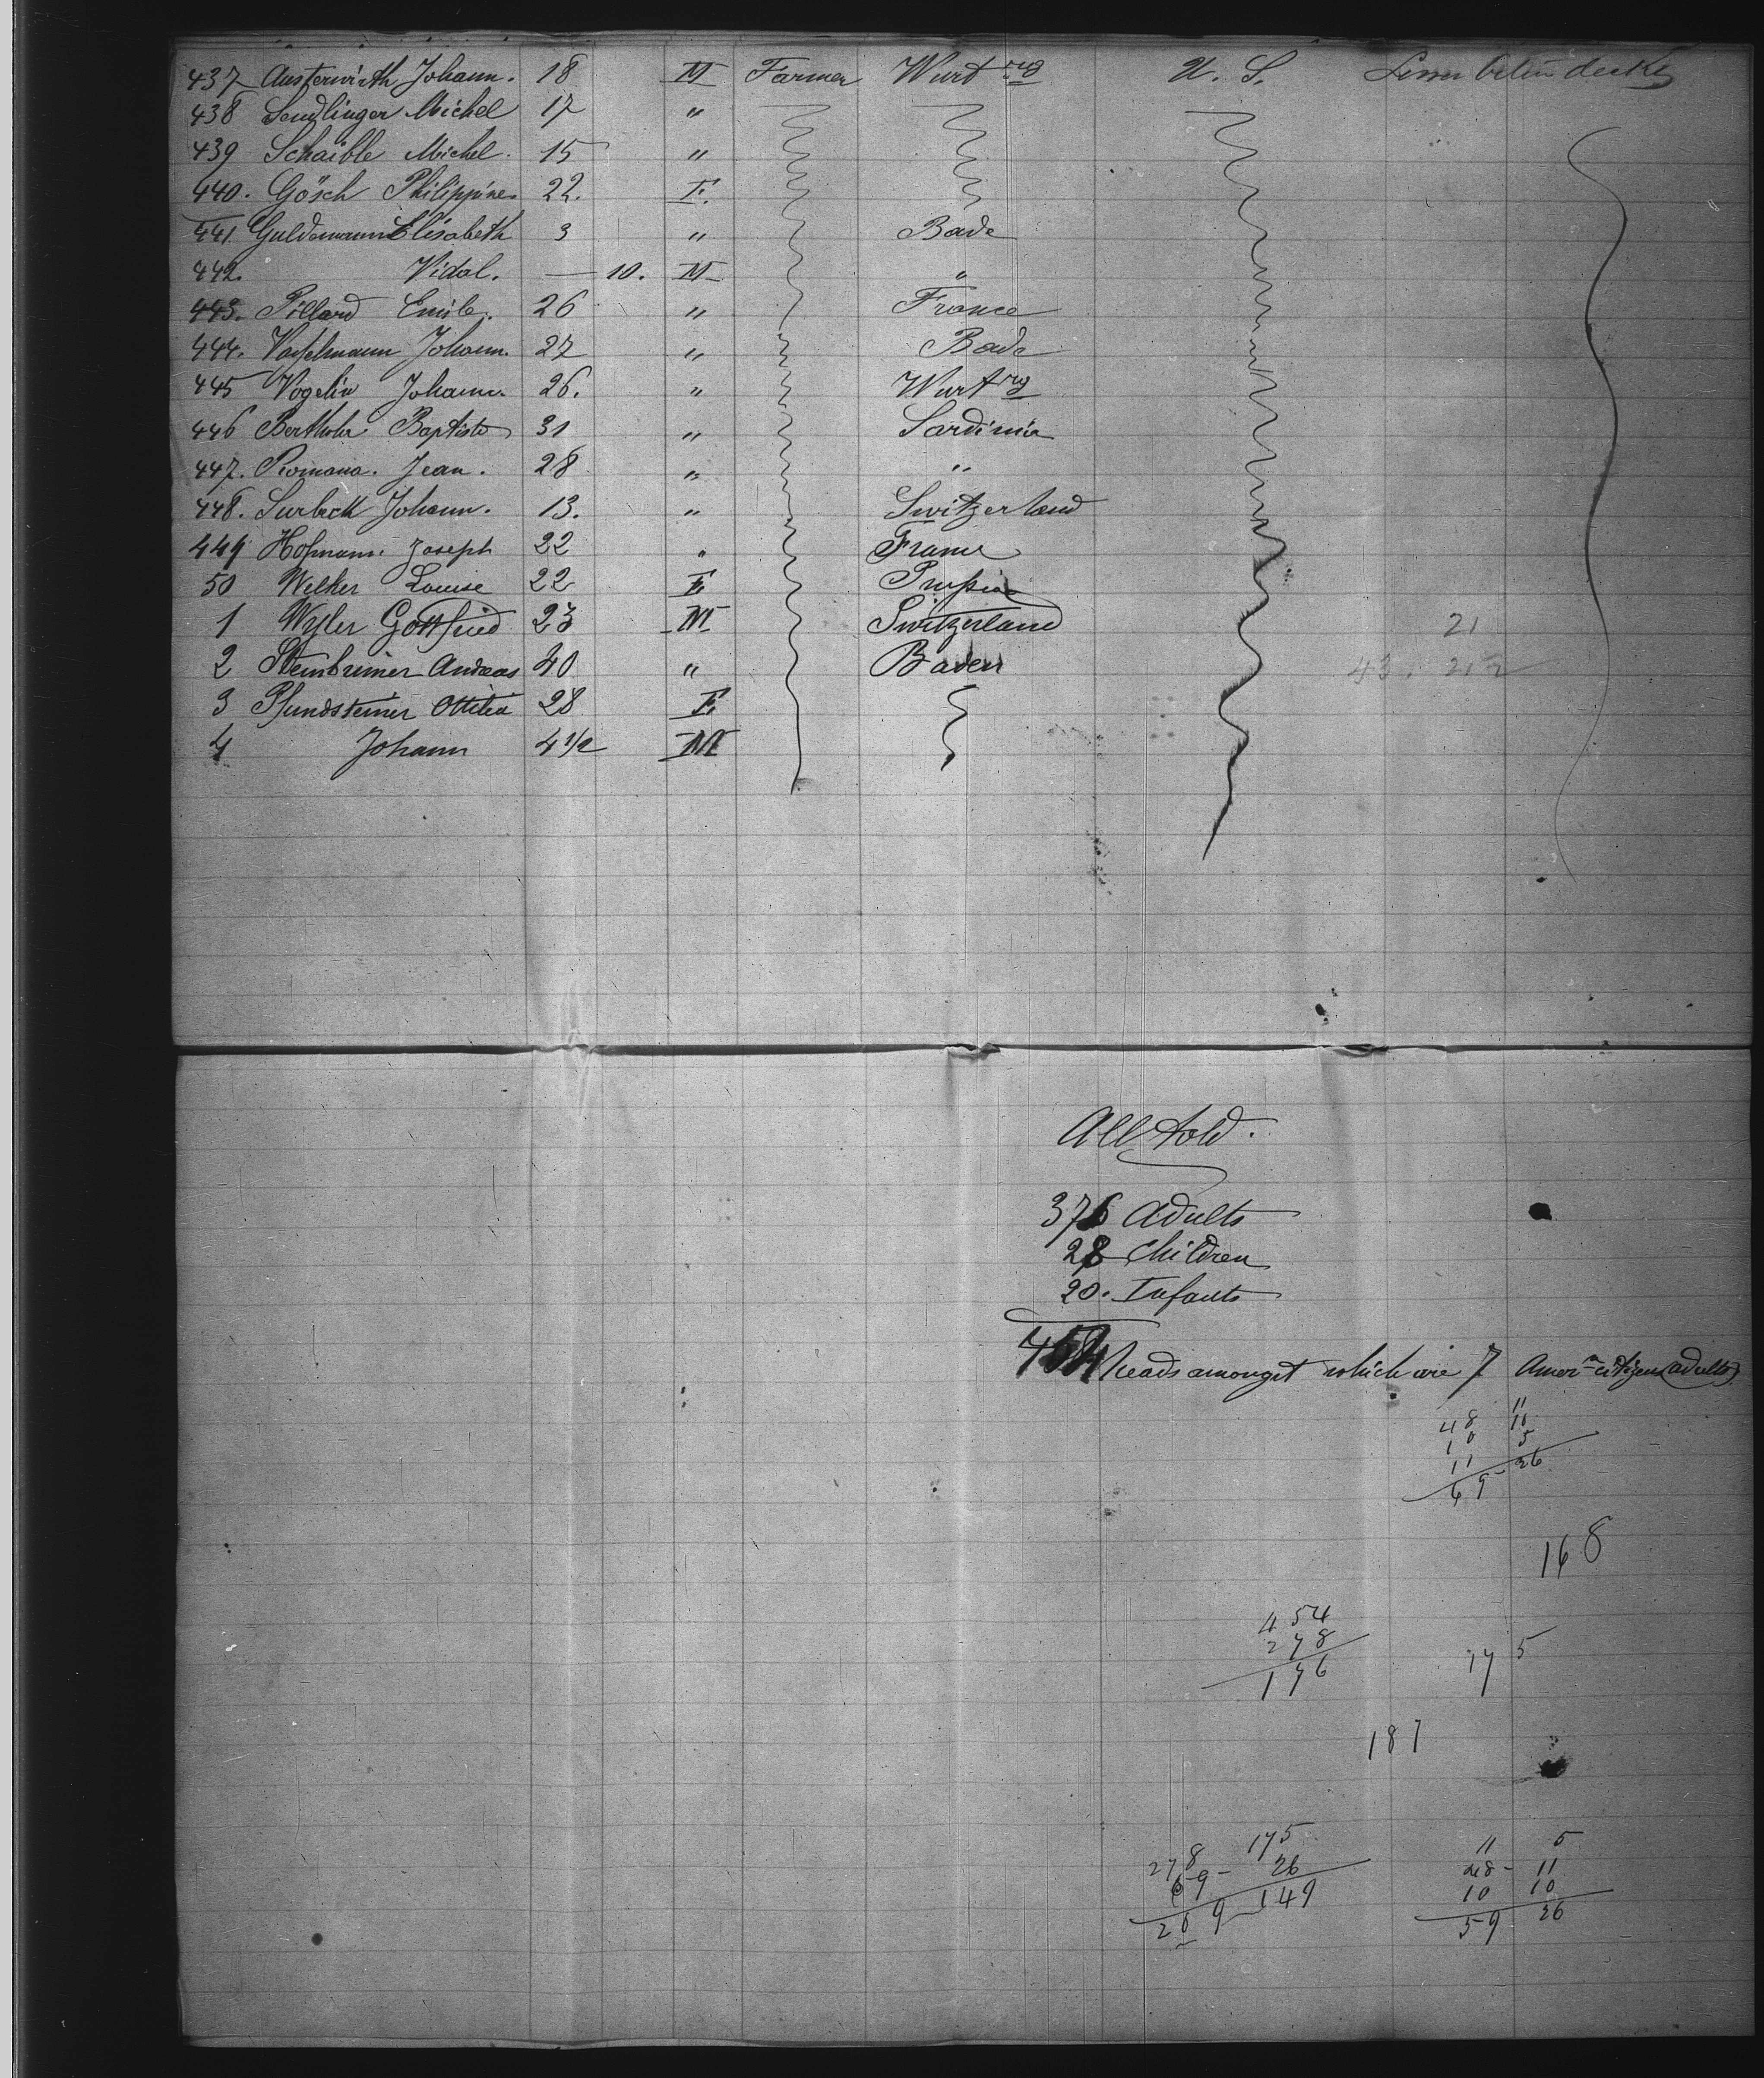 437 Austerwirth Johann. 18 M Farmer Wurt rg U. S.
438 Sendlinger Michel 17 "
439 Schaible Michel. 15 "
440. Gösch Philippine 22. F.
441 Guldemann Elisabeth 3 " Bade
442. Vidal. — 10. M "
443. Pillard Emile. 26 " France
444. Johann. 27 " Bade
445 Vogelin Johann. 26. " Wurt rg
446 Baptiste 31 " Sardinia
447. Romana. Jean. 28 " "
448. Surbeck Johann. 13. " Switzerland
449 Hofmann. Joseph 22 " France
50 Welker Louise 22 F. Prussia
1 Wyler Gottfried 23 M Switzerland 21
2 Steinbruner Andreas 40 " Baden 43.
3 Pfundsteiner Ottilia 28 F.
4 Johann 4 1/2 M
All told.
376 Adults
28 Children
20. Infants
454 heads amongst which are 7 Amer n citizens (adults)
11
48 10
10 5
11 26
69
168
454
278
176
175
181
278 175
69 - 26
209 149
11 5
28 - 11
10 10
59 26